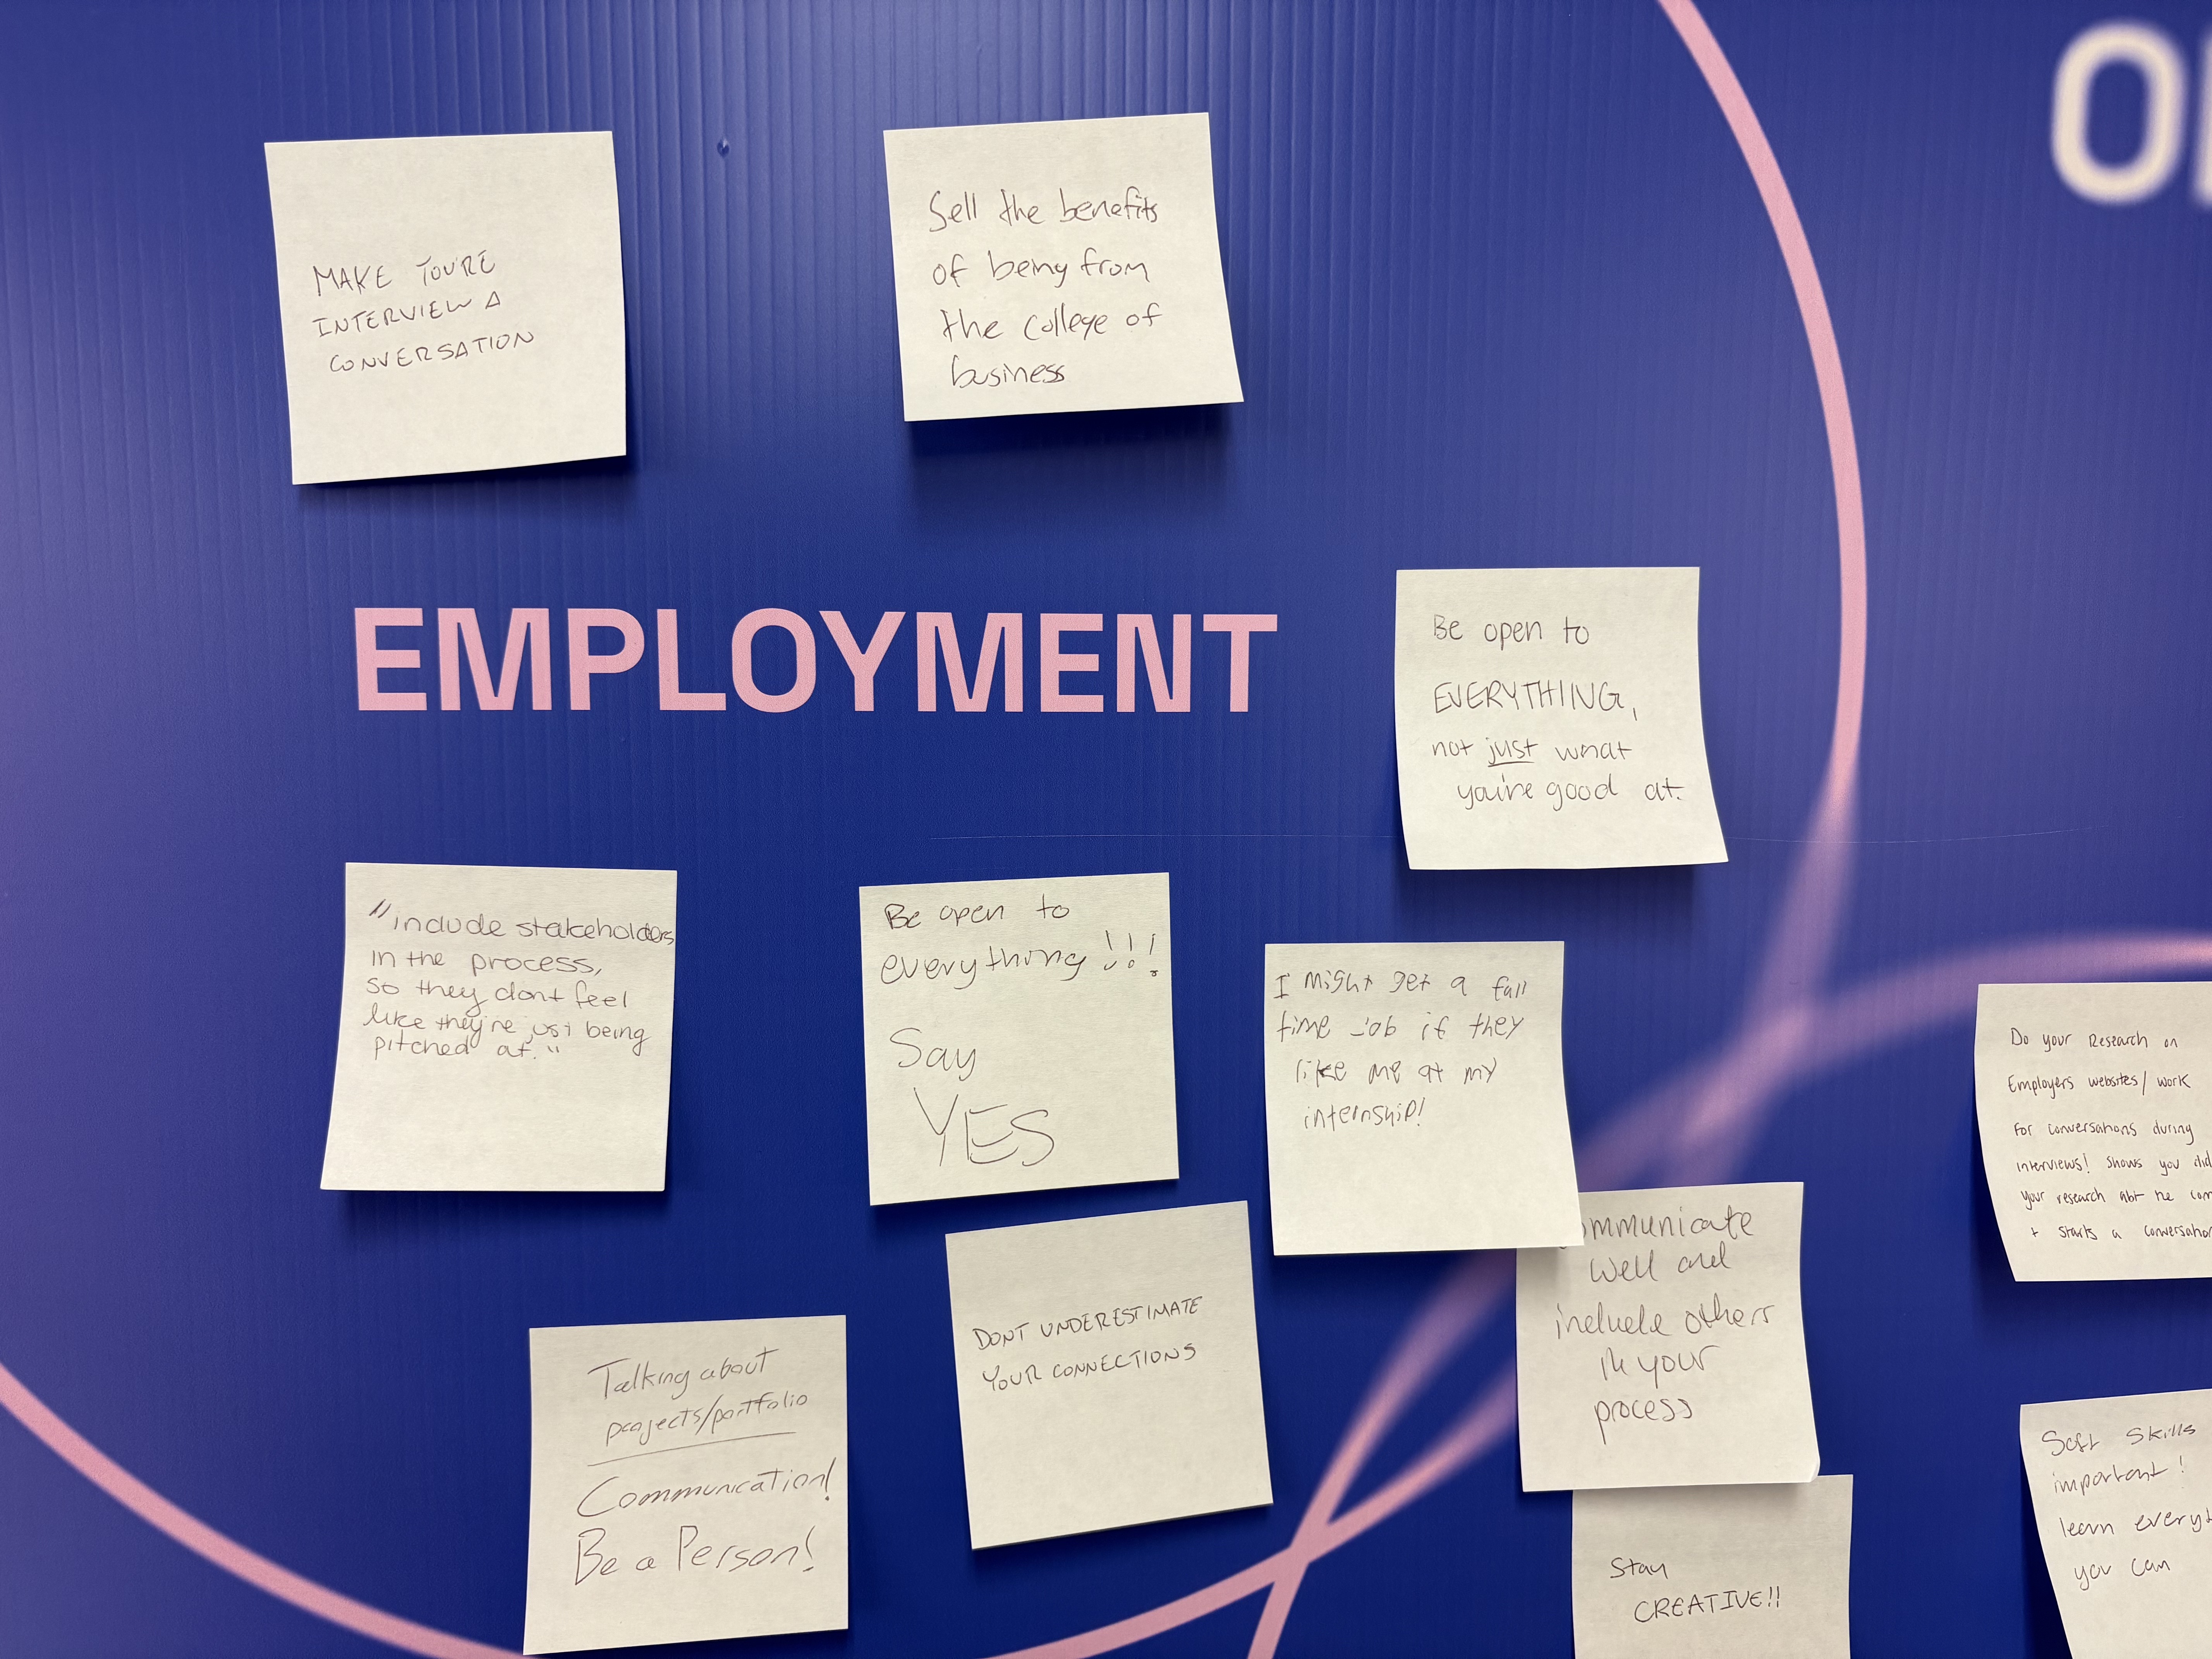 MAKE YOU'RE
INTERVIEW A
CONVERSATION
Sell the benefits
of being from
the college of
business
EMPLOYMENT
Be open to
EVERYTHING,
not just what
you're good at.
"include stakeholders
in the process,
so they dont feel
like they're just being
pitched at."
Be open to
everything!!!
Say
YES
I might get a full
time job if they
like me at my
internship!
ommunicate
well and
include others
in your
process
Do your Research on
Employers websites/work
for conversations during
interviews! Shows you did
your research abt the com
+ starts a conversation
Talking about
projects/portfolio
Communication!
Be a Person!
DONT UNDERESTIMATE
YOUR CONNECTIONS
Stay
CREATIVE!!
Soft Skills
important!
learn everyt
you can